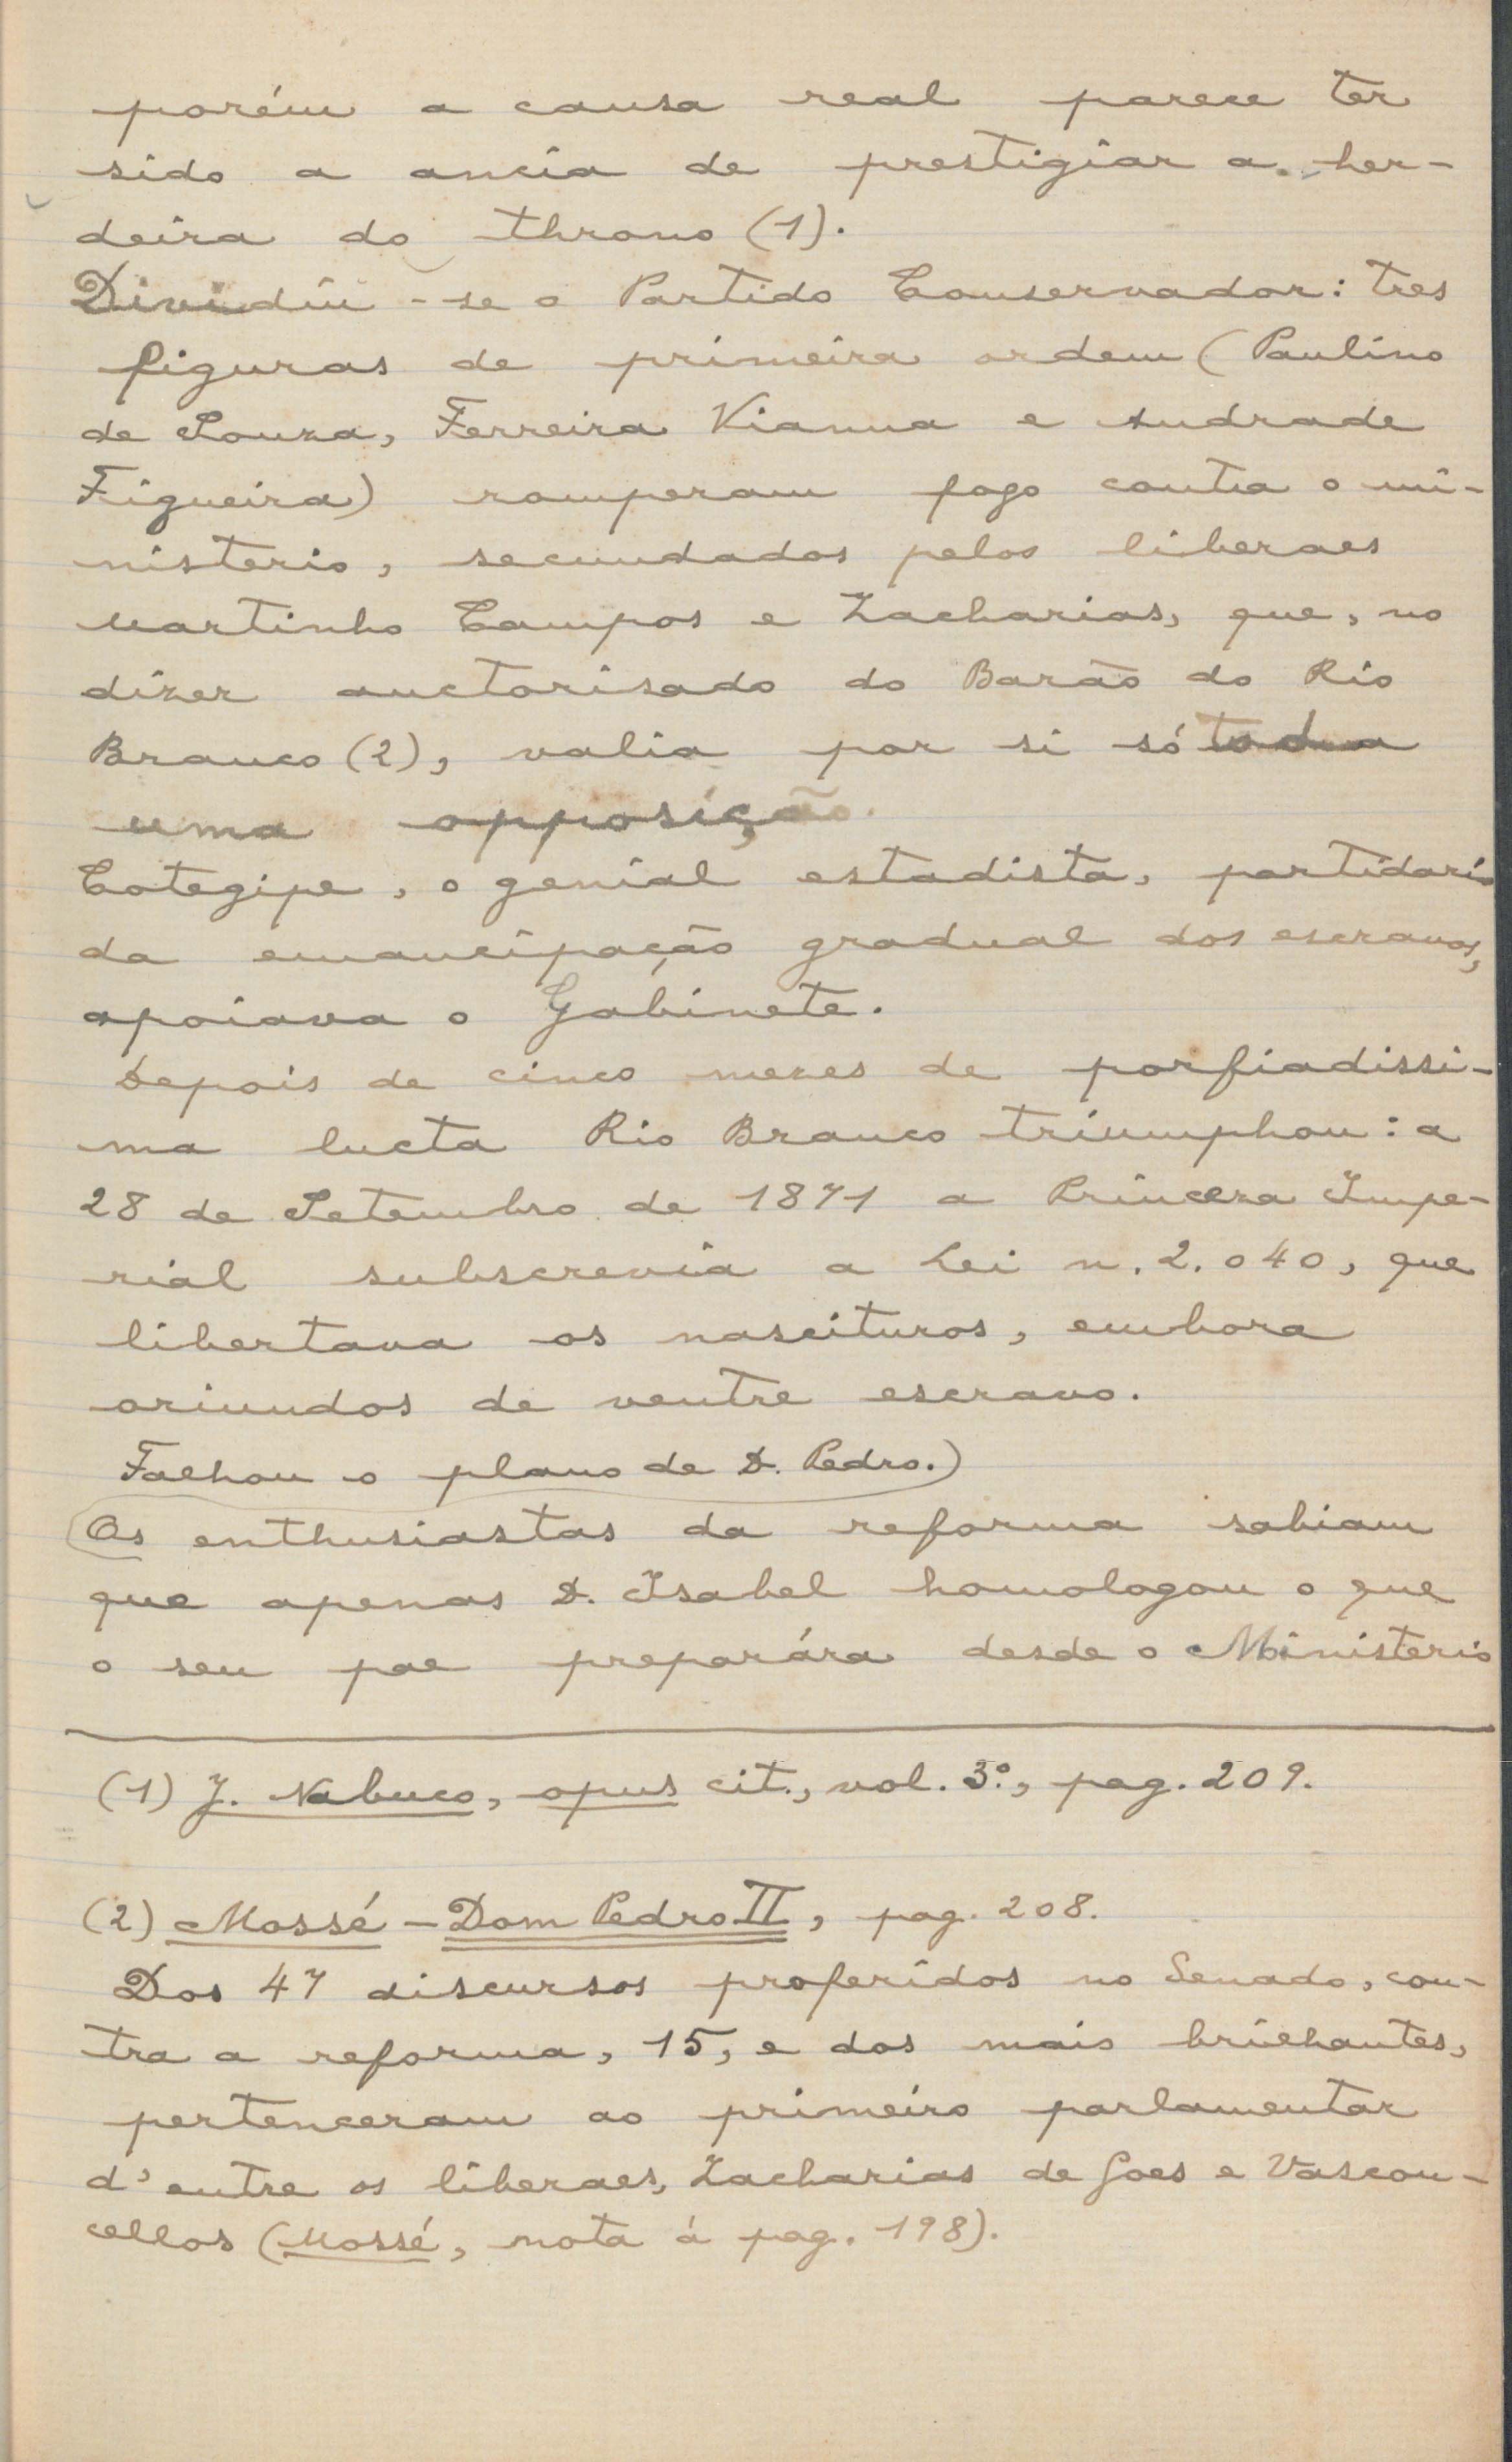 porém a causa real parece ter
sido a ancia de prestigiar a her-
deira do throno (1).
Dividiu-se o Partido Conservador: tres
figuras de primeira ordem (Paulino
de Souza, Ferreira Vianna e Andrade
Figueira) romperam fogo contra o mi-
nisterio, secundados pelos liberaes
Martinho Campos e Zacharias, que, no
dizer auctorisado do Barão do Rio
Branco (2), valia por si só toda
uma opposição.
Cotegipe, o genial estadista, partidario
da emancipação gradual dos escravos,
apoiava o Gabinete.
Depois de cinco mezes de porfiadissi-
ma lucta Rio Branco triumphou: a
28 de Setembro de 1871 a Princeza Impe-
rial subscrevia a Lei n. 2.040, que
libertava os nascituros, embora
oriundos de ventre escravo.
Falhou o plano de D. Pedro.)
Os enthusiastas da reforma sabiam
que apenas D. Isabel homologou o que
o seu pae preparára desde o Ministerio
(1) J. Nabuco, opus cit., vol. 3º, pag. 209.
(2) Mossé - Dom Pedro II, pag. 208.
Dos 47 discursos proferidos no Senado, con-
tra a reforma, 15, e dos mais brilhantes,
pertenceram ao primeiro parlamentar
d'entre os liberaes, Zacharias de Goes e Vascon-
cellos (Mossé, nota á pag. 198).